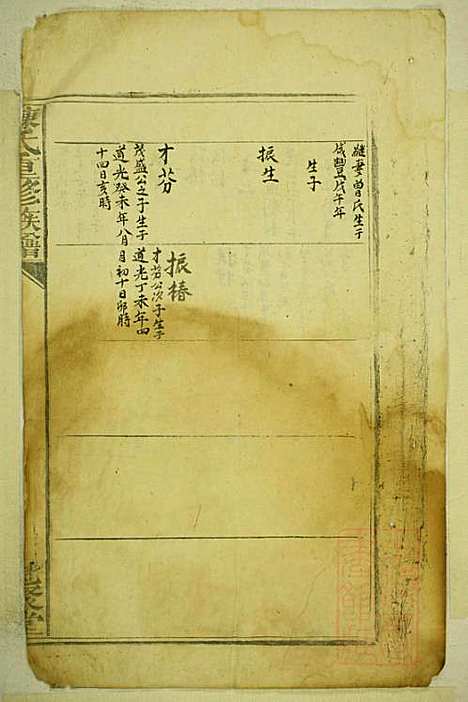 繼妻曾氏生于
咸豐戊午年
生子
振生
才芬
茂盛公之子生于
道光癸未年八月
十四日亥時
振椿
才芬公次子生于
道光丁未年四
月初十日卯時
氏重修族譜
堂